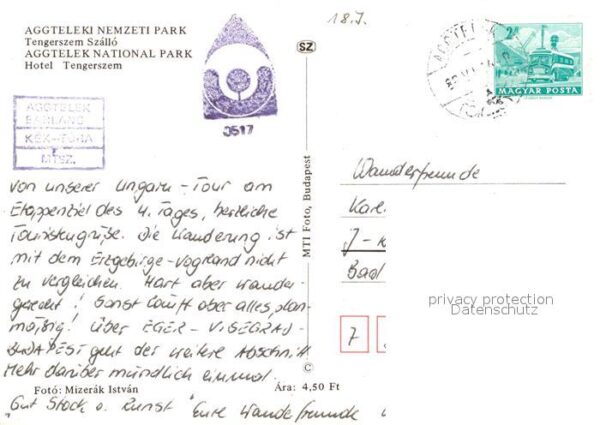 AGGTELEKI NEMZETI PARK
Tengerszem Szálló
AGGTELEK NATIONAL PARK
Hotel Tengerszem
18.7.
SZ
AGGTELEK
2Ft
MAGYAR POSTA
0517
AGGTELEK
BARLANG
KÉK-TÚRA
MTSZ.
Von unserer Ungarn-Tour am
Etappenziel des 4. Tages, herzliche
Touristengrüße. Die Wanderung ist
mit dem Erzgebirge-Vogtland nicht
zu vergleichen. Hart aber wander-
gerecht! Sonst läuft aber alles plan-
mäßig! Über EGER - VISEGRAD-
BUDAPEST geht der weitere Abschnitt
Mehr darüber mündlich einmal.
"Gut Stock u. Eure Wanderfreunde
MTI Foto, Budapest
Wanderfreunde
Karl
Bad
7
privacy protection
Datenschutz
Fotó: Mizerák István
Ára: 4,50 Ft